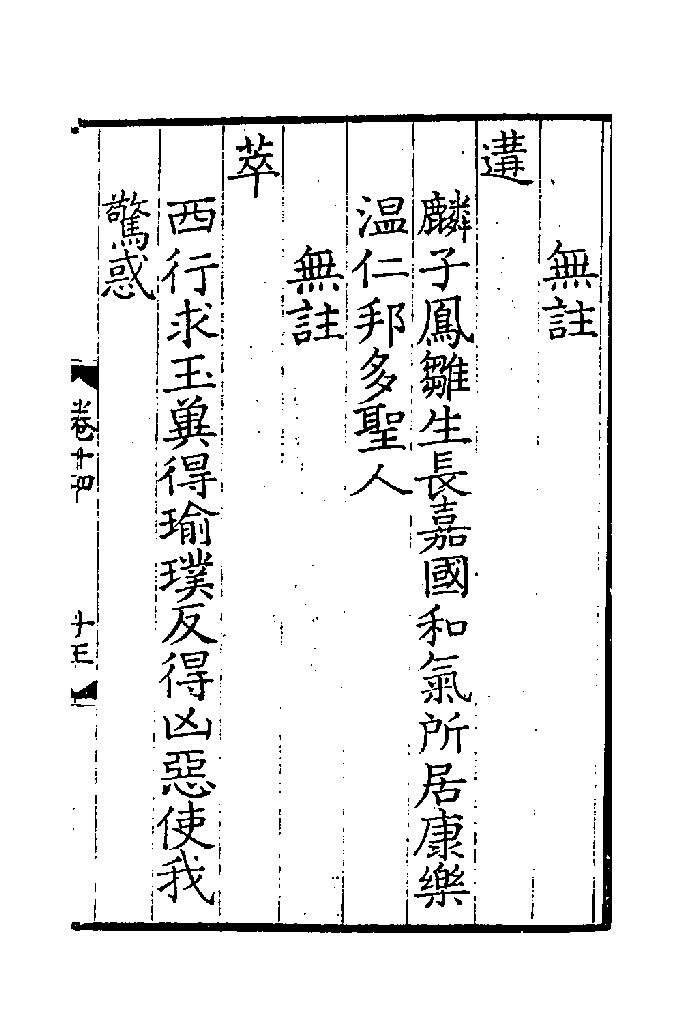 無註
遘
麟子鳳雛生長嘉國和氣所居康樂
温仁邦多聖人
無註
萃
西行求玉兾得瑜璞反得凶惡使我
驚惑
卷十四
十三